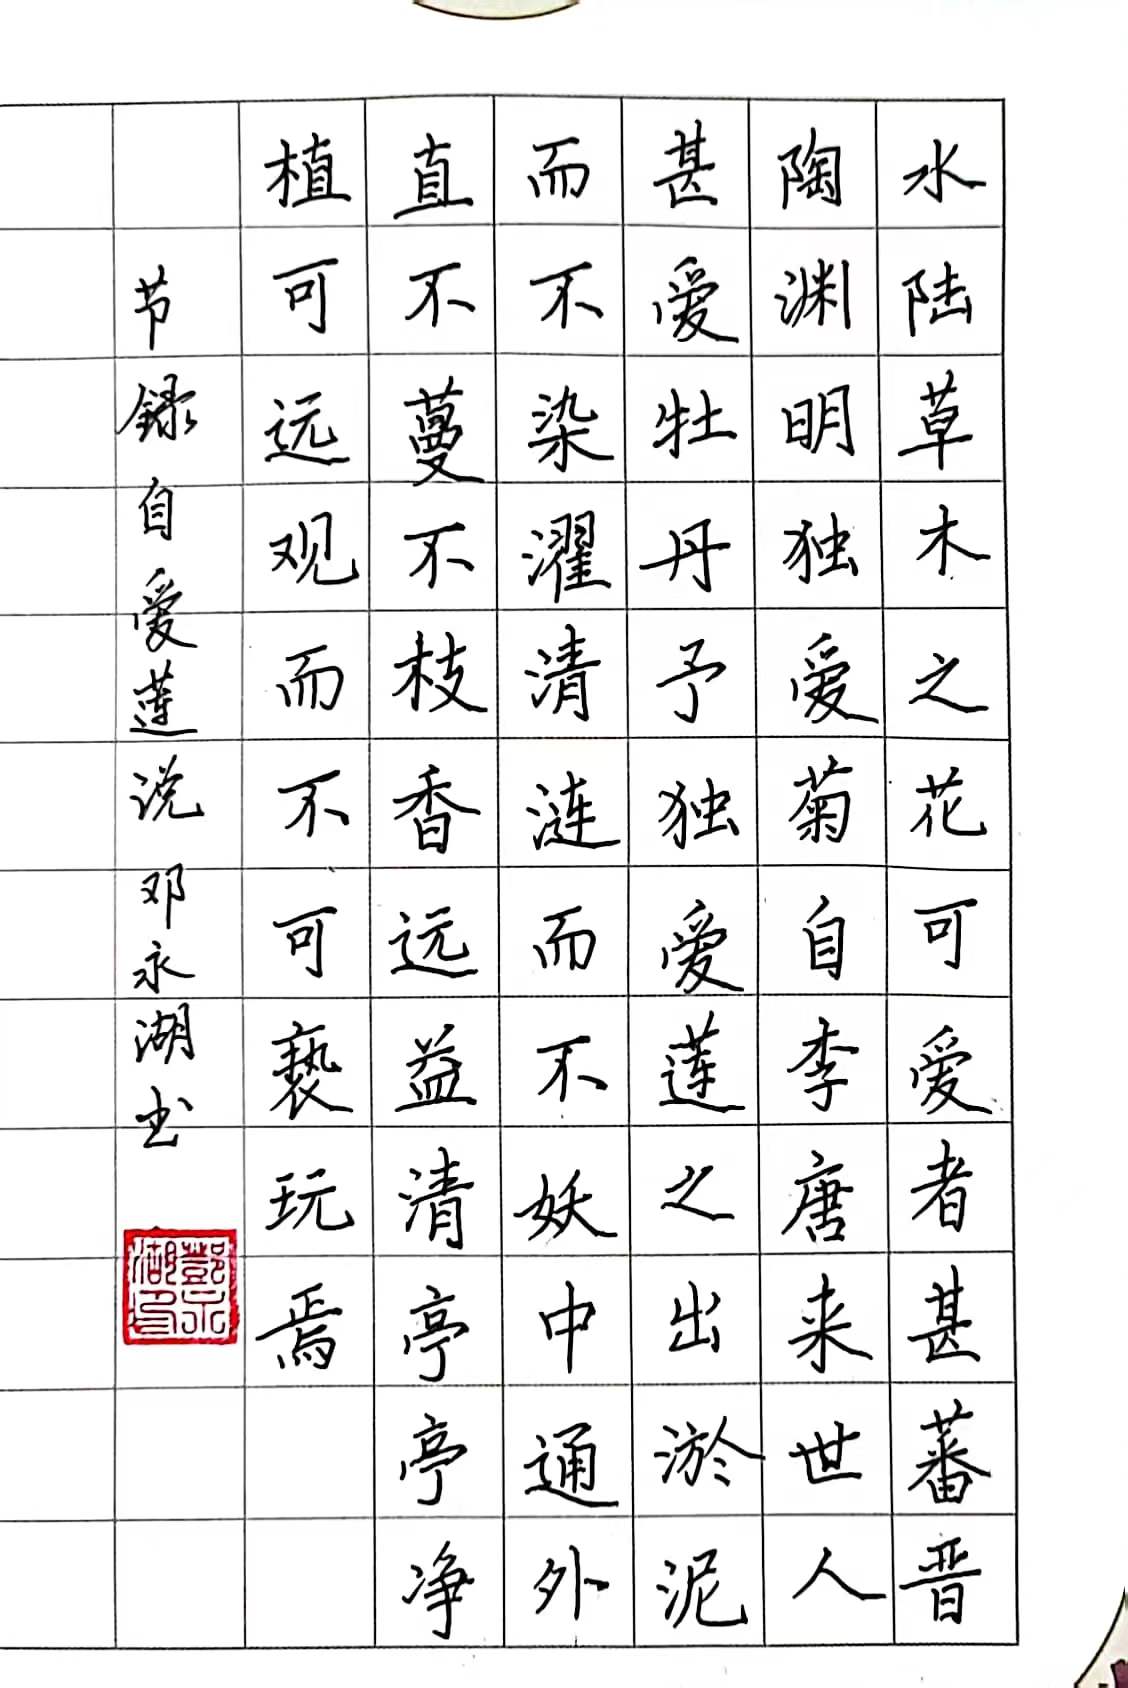 水陆草木之花可爱者甚蕃晋
陶渊明独爱菊自李唐来世人
甚爱牡丹予独爱莲之出淤泥
而不染濯清涟而不妖中通外
直不蔓不枝香远益清亭亭净
植可远观而不可亵玩焉
节録自爱莲说邓永湖书